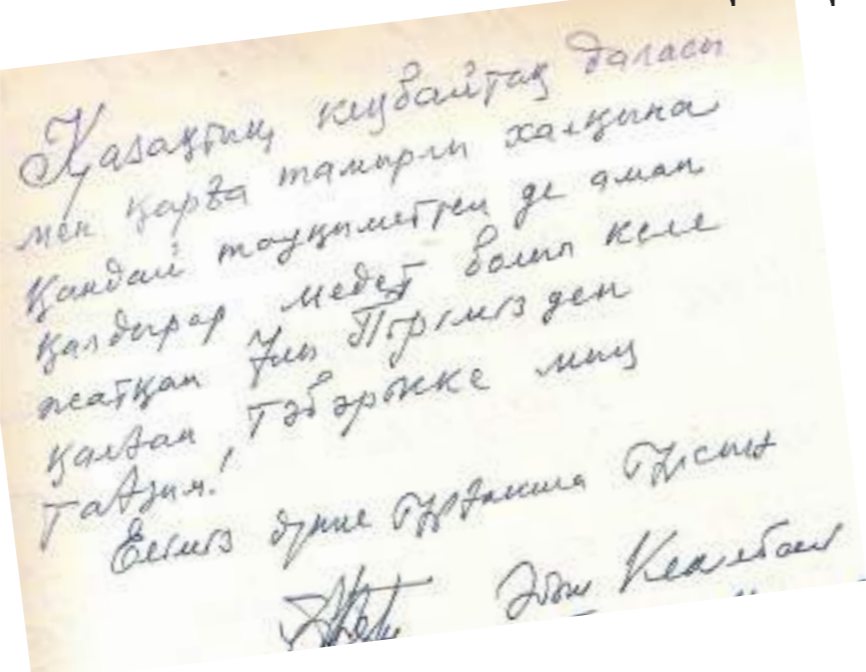 Қазақтың кеңбайтақ даласы
мен қарға тамырлы халқына
қандай тауқыметтен де аман
қалдырар медет болып келе
жатқан Ұлы Пірімізден
қалған Тәбәрікке мың
Тағзым!
Еліміз дүние тұрғанша тұрсын
Әбіш Кекілбаев